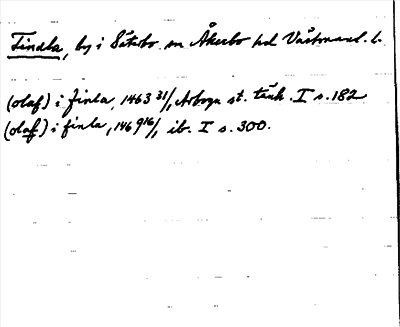 Findla, by i Säterbo sn Åkerbo hd Västmanl. l.
(olaf) i finla, 1463 31/1, Arboga st. tänk. I s. 182
(olaf) i finla, 1469 16/1, ib. I s. 300.